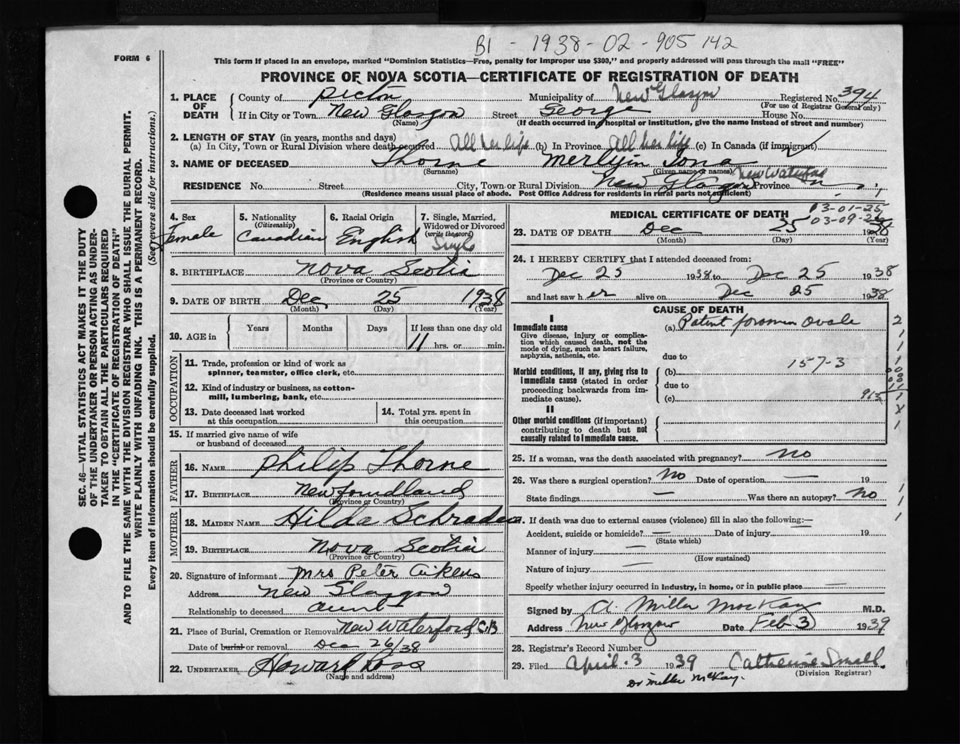 B1 - 1938 - 02 - 905 142
FORM 6
This form if placed in an envelope, marked "Dominion Statistics—Free, penalty for improper use $300," and properly addressed will pass through the mail "FREE"
PROVINCE OF NOVA SCOTIA—CERTIFICATE OF REGISTRATION OF DEATH
SEC. 46—VITAL STATISTICS ACT MAKES IT THE DUTY
OF THE UNDERTAKER OR PERSON ACTING AS UNDER-
TAKER TO OBTAIN ALL THE PARTICULARS REQUIRED
IN THE "CERTIFICATE OF REGISTRATION OF DEATH"
AND TO FILE THE SAME WITH THE DIVISION REGISTRAR WHO SHALL ISSUE THE BURIAL PERMIT.
WRITE PLAINLY WITH UNFADING INK. THIS IS A PERMANENT RECORD.
Every item of information should be carefully supplied. (See reverse side for instructions.)
1. PLACE OF DEATH County of Pictou Municipality of New Glasgow Registered No. 394
(For use of Registrar General only)
If in City or Town New Glasgow Street George House No.
(Name) (If death occurred in hospital or institution, give the name instead of street and number)
2. LENGTH OF STAY (in years, months and days)
(a) In City, Town or Rural Division where death occurred All her life (b) In Province All her life (c) In Canada (if immigrant)
3. NAME OF DECEASED Thorne Merlyin Iona
(Surname) (Given name or names)
New Waterford
RESIDENCE No. Street City, Town or Rural Division New Glasgow Province
(Residence means usual place of abode. Post Office Address for residents in rural parts not sufficient)
4. Sex Female
5. Nationality (Citizenship) Canadian
6. Racial Origin English
7. Single, Married, Widowed or Divorced (write the word) Single
8. BIRTHPLACE Nova Scotia
(Province or Country)
9. DATE OF BIRTH Dec 25 1938
(Month) (Day) (Year)
10. AGE in Years Months Days If less than one day old
11 hrs. or min.
OCCUPATION
11. Trade, profession or kind of work as
spinner, teamster, office clerk, etc.
12. Kind of industry or business, as cotton-
mill, lumbering, bank, etc.
13. Date deceased last worked
at this occupation
14. Total yrs. spent in
this occupation
15. If married give name of wife
or husband of deceased
FATHER
16. NAME Philip Thorne
17. BIRTHPLACE Newfoundland
(Province or Country)
MOTHER
18. MAIDEN NAME Hilda Schrader
19. BIRTHPLACE Nova Scotia
(Province or Country)
20. Signature of informant Mrs Peter Aikens
Address New Glasgow
Relationship to deceased aunt
21. Place of Burial, Cremation or Removal New Waterford CB
Date of burial or removal Dec 26/38
22. UNDERTAKER Howard Ross
(Name and address)
MEDICAL CERTIFICATE OF DEATH
03-01-25
23. DATE OF DEATH Dec 25 1938
(Month) (Day) (Year)
24. I HEREBY CERTIFY that I attended deceased from:
Dec 25 1938 to Dec 25 1938
and last saw her alive on Dec 25 1938
CAUSE OF DEATH
I
Immediate cause
Give disease, injury or complica-
tion which caused death, not the
mode of dying, such as heart failure,
asphyxia, asthenia, etc.
(a) Patent foramen Ovale
due to
Morbid conditions, if any, giving rise to
immediate cause (stated in order
proceeding backwards from im-
mediate cause).
(b) 157-3
due to
(c)
II
Other morbid conditions (if important)
contributing to death but not
causally related to immediate cause.
25. If a woman, was the death associated with pregnancy? no
26. Was there a surgical operation? No Date of operation — 19
State findings — Was there an autopsy? No
27. If death was due to external causes (violence) fill in also the following:—
Accident, suicide or homicide? — Date of injury 19
(State which)
Manner of injury —
(How sustained)
Nature of injury —
Specify whether injury occurred in industry, in home, or in public place —
Signed by A. Miller MacKay M.D.
Address New Glasgow Date Feb 3 1939
28. Registrar's Record Number
29. Filed April 3 1939 Catherine Small
(Division Registrar)
Dr Miller McKay.